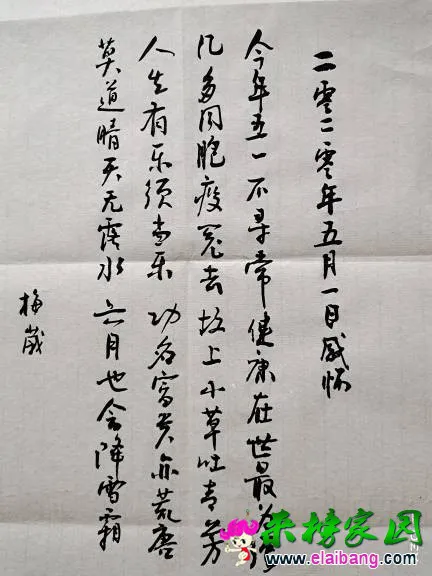 二零二零年五月一日感怀
今年五一不寻常 健康在世最为强
几多同胞疫冤去 坟上小草吐青芳
人生有乐须当乐 功名富贵亦荒唐
莫道晴天无露水 六月也会降雪霜
梅葳
来榜家园
www.elaibang.com